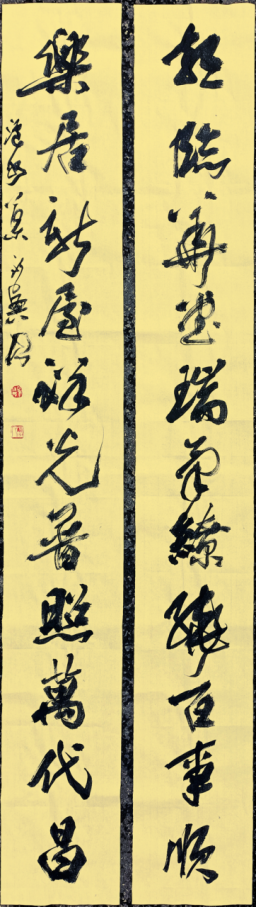 臨華堂瑞氣繚繞百事順
樂居新屋祥光普照萬代昌